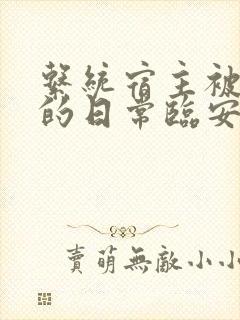 繫統宿主被
的日常臨安
賣萌無敵小小